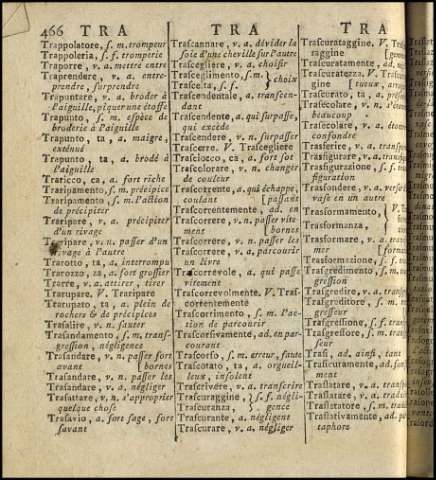 466 TRA
Trappolatore, s. m. trompeur
Trappoleria, s. f. tromperie
Traporre, v. a. mettre entre
Traprendere, v. a. entre-
prendre, surprendre
Trapuntare, v. a. broder à
l'aiguille, piquer une étoffe
Trapunto, s. m. espèce de
broderie à l'aiguille
Trapunto, ta, a. maigre,
exténué
Trapunto, ta, a. brodé à
l'aiguille
Traricco, ca, a. fort riche
Traripamento, s. m. précipice
Traripamento, s. m. l'action
de précipiter
Traripare, v. a. précipiter
d'un rivage
Traripare, v. n. passer d'un
rivage à l'autre
Trarotto, ta, a. interrompu
Trarozzo, za, a. fort grossier
Trarre, v. a. attirer, tirer
Trarupare. V. Traripare
Trarupato, ta, a. plein de
rochers & de précipices
Trasalire, v. n. sauter
Trasandamento, s. m. trans-
gression, négligence
Trasandare, v. n. passer fort
avant [bornes
Trasandare, v. n. passer les
Trasandare, v. a. négliger
Trasattare, v. n. s'approprier
quelque chose
Trasavio, a. fort sage, fort
savant
TRA
Trascannare, v. a. dévider la
soie d'une cheville sur l'autre
Trascegliere, v. a. choisir
Trasceglimento, s. m. } choix
Trascelta, s. f.
Trascendentale, a. transcen-
dant
Trascendente, a. qui surpasse,
qui excede
Trascendere, v. n. surpasser
Trascerre. V. Trascegliere
Trasciocco, ca, a. fort sot
Trascolorare, v. n. changer
de couleur
Trascorrente, a. qui échappe,
coulant [passant
Trascorrentemente, ad. en
Trascorrere, v. n. passer vîte-
ment [bornes
Trascorrere, v. n. passer les
Trascorrere, v. a. parcourir
un livre
Trascorrevole, a. qui passe
vîtement
Trascorrevolmente. V. Tras-
correntemente
Trascorrimento, s. m. l'ac-
tion de parcourir
Trascorsivamente, ad. en par-
courant
Trascorso, s. m. erreur, faute
Trascotato, ta, a. orgueil-
leux, insolent
Trascrivere, v. a. transcrire
Trascuraggine, } s. f. négli-
Trascuranza, gence
Trascurante, a. négligent
Trascurare, v. a. négliger
TRA
Trascurataggine. V. Trascu-
raggine
Trascuratamente, ad.
Trascuratezza. V.
gine
Trascurato, ta, a.
Trasecolare, v. n. s'é
beaucoup
Trasecolare, v. a. éton
confondre
Trasferire, v. a. transp
Trasfigurare, v. a. trans
Trasfigurazione, s. f.
figuration
Trasfondere, v. a. verser
vase en un autre
Trasformamento,
Trasformanza,
Trasformare, v. a. trans
mer
Trasformazione, s. f.
Trasgredimento, s. m.
gression
Trasgredire, v. a. trans
Trasgreditore, s. m.
gresseur
Trasgressione, s. f. trans
Trasgressore, s. m. trans
seur
Trasi, ad. ainsi, tant
Trasicuramente, ad.
ment
Traslatare, v. a. transpo
Traslatare, v. a. tradu
Traslatatore, s. m. tradu
Traslativamente, ad. par
taphore